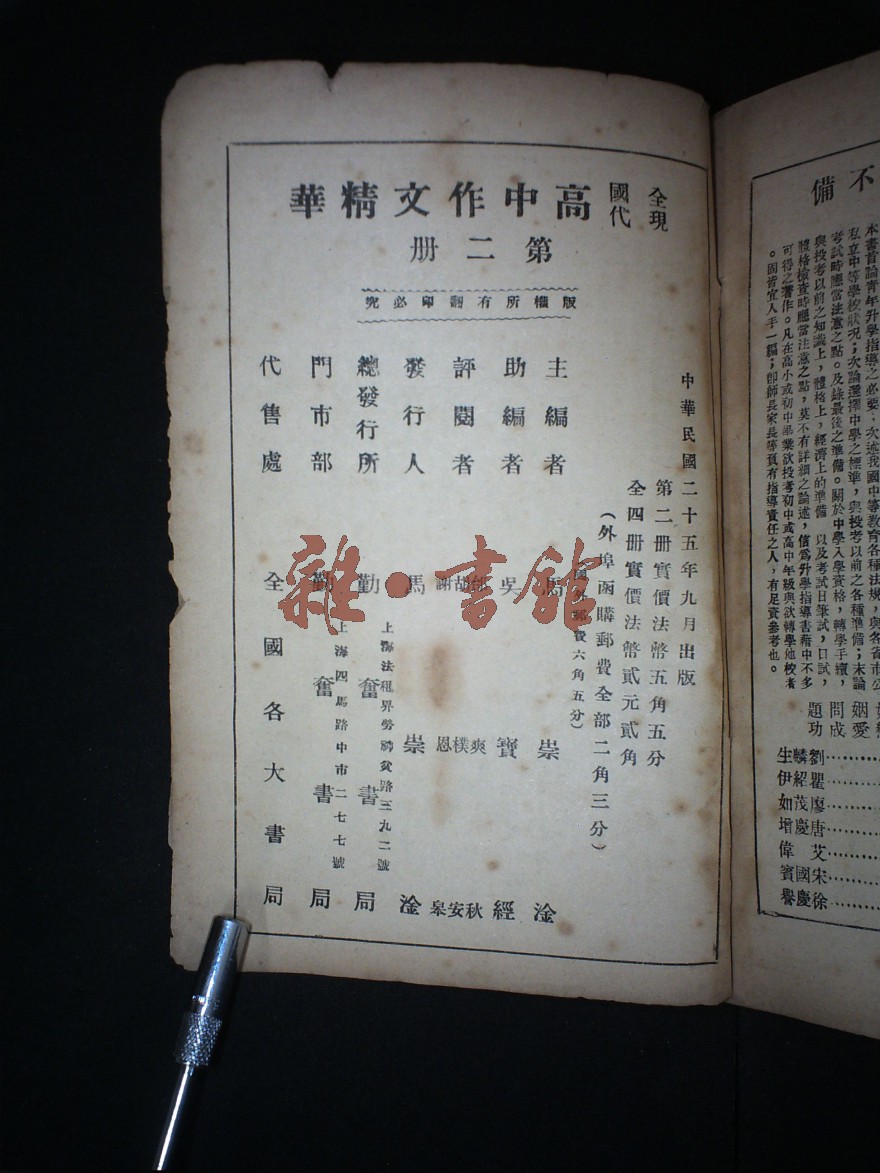 全國
現代
高中作文精華
第二冊
版權所有翻印必究
中華民國二十五年九月出版
第二冊實價法幣五角五分
全四冊實價法幣貳元貳角
（外埠函購郵費全部二角三分）
國外郵費六角五分）
主編者 馬崇淦
助編者 吳寶經
評閱者 邰爽秋 胡樸安 謝恩皋
發行人 馬崇淦
總發行所 勤奮書局
上海法租界勞神父路三九二號
門市部 勤奮書局
上海四馬路中市二七七號
代售處 全國各大書局
雜·書館
不備
本書首論青年升學指導之必要，次述我國中等教育各種法規，與各省市公
私立中等學校狀況；次論選擇中學之標準，與投考以前之各種準備；末論
考試時應當注意之點。及錄最後之準備。關於中學入學資格，轉學手續，
與投考以前之知識上，體格上，經濟上的準備 以及考試日筆試，口試，
體格檢查時應當注意之點，莫不有詳細之論述，信爲升學指導書藉中不多
可得之著作。凡在高小或初中畢業欲投考初中或高中年級與欲轉學他校者
。固皆宜人手一編；即師長家長等負有指導責任之人，有足資參考也。
愛成功
姻問題
劉麟生
瞿紹伊
廖茂如
唐慶增
艾偉
宋國賓
徐慶譽